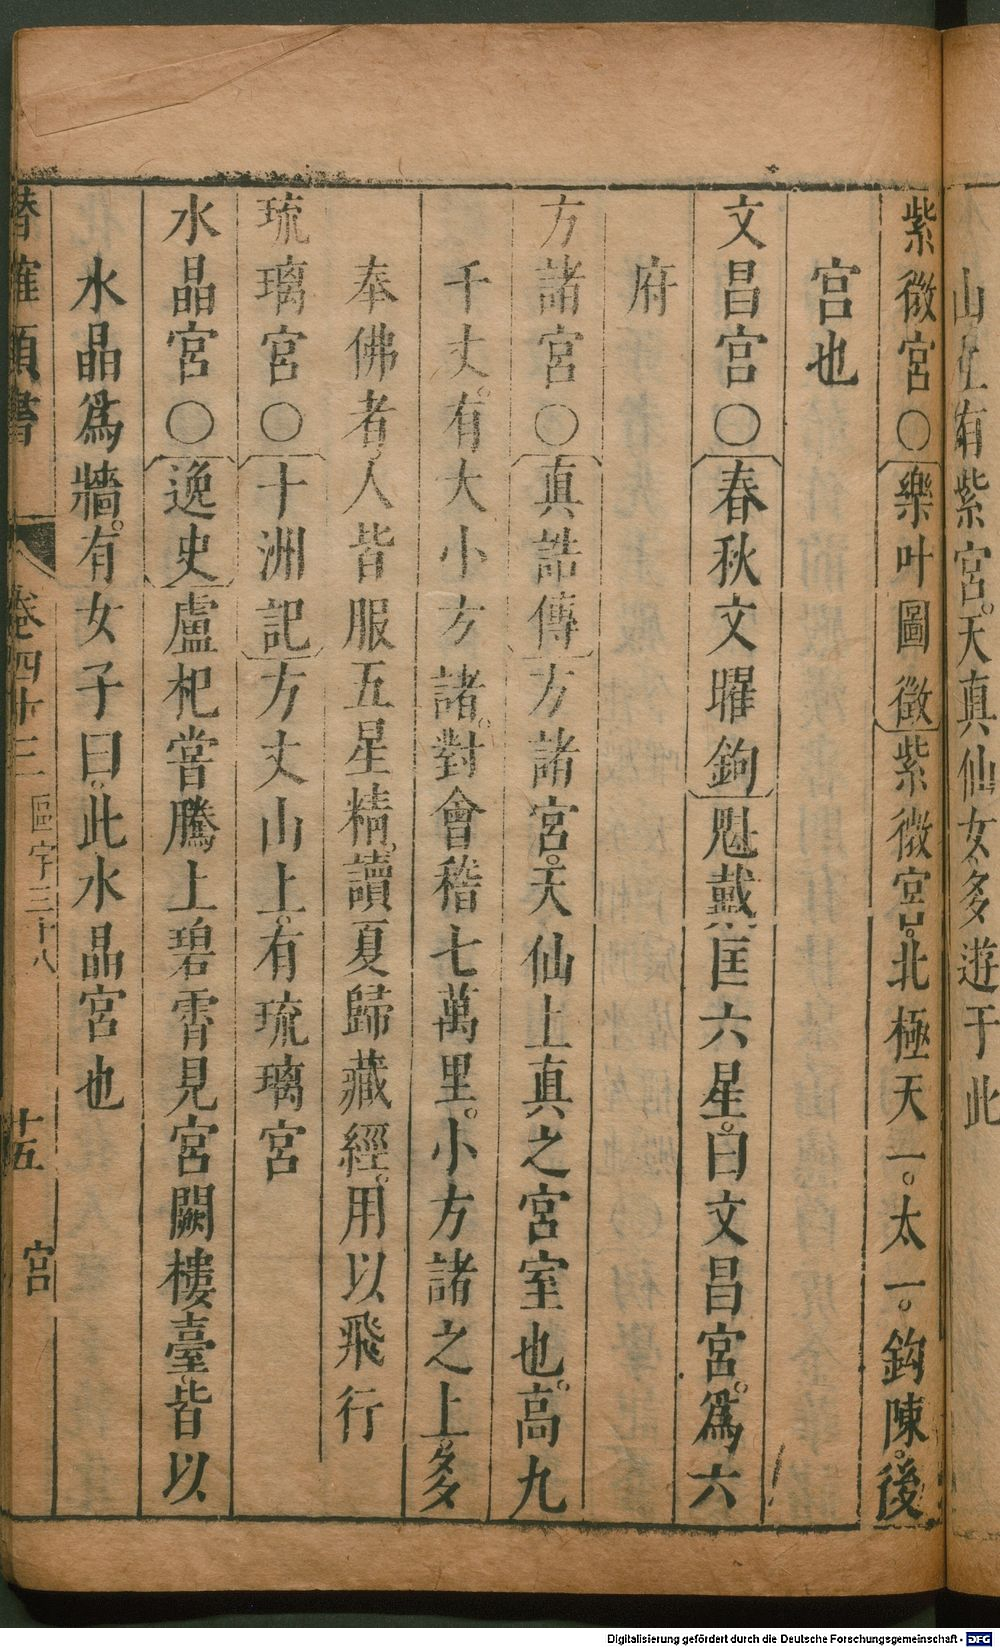 山上有紫宮。天真仙女多遊于此
紫微宮○樂叶圖徵紫微宮。北極天一。太一。鈎陳。後
宮也
文昌宮○春秋文曜鉤魁戴匡六星。曰文昌宮。爲六
府
方諸宮○真誥傳方諸宮。天仙上真之宮室也。高九
千丈。有大小方諸。對會稽七萬里。小方諸之上。多
奉佛者人皆服五星精。讀夏歸藏經。用以飛行
琉璃宮○十洲記方丈山上。有琉璃宮
水晶宮○逸史盧杞嘗騰上碧霄見宮闕樓臺。皆以
水晶爲牆。有女子曰。此水晶宮也
潛確類書 卷四十三 區宇三十八 十五 宮
Digitalisierung gefördert durch die Deutsche Forschungsgemeinschaft - DFG